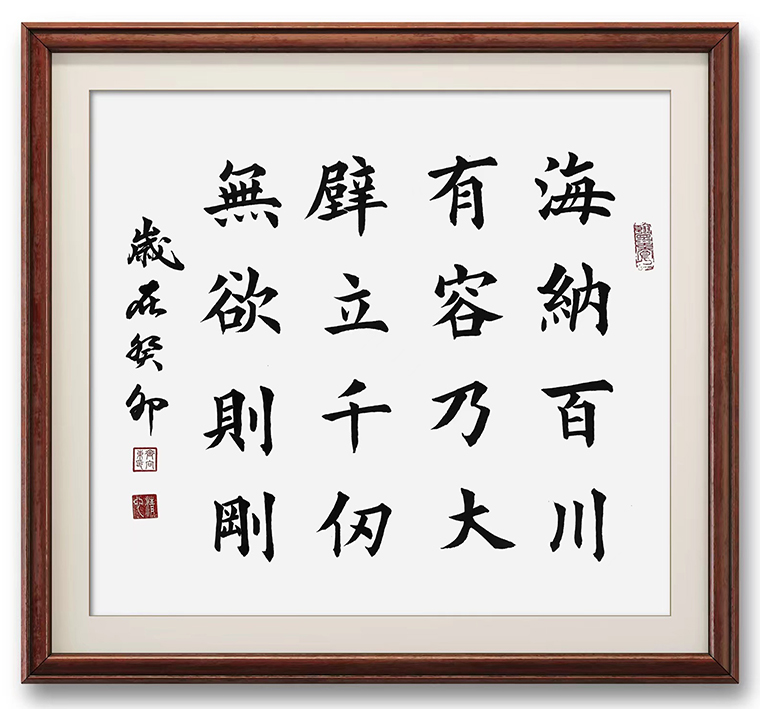 海納百川
有容乃大
壁立千仞
無欲則剛
歲在癸卯